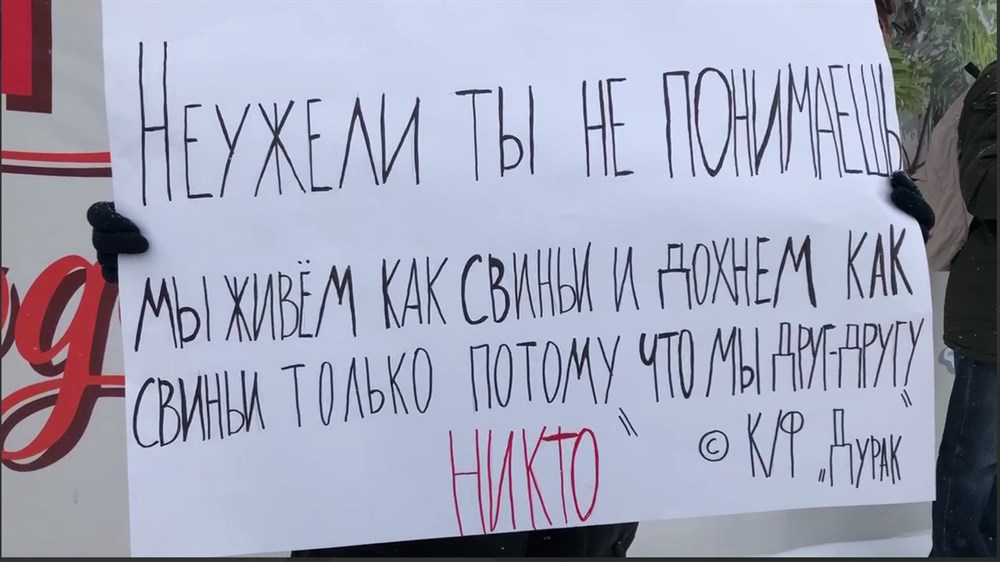 НЕУЖЕЛИ ТЫ НЕ ПОНИМАЕШЬ
МЫ ЖИВЁМ КАК СВИНЬИ И ДОХНЕМ КАК
СВИНЬИ ТОЛЬКО ПОТОМУ ЧТО МЫ ДРУГ-ДРУГУ
НИКТО" © К/Ф „ДУРАК"